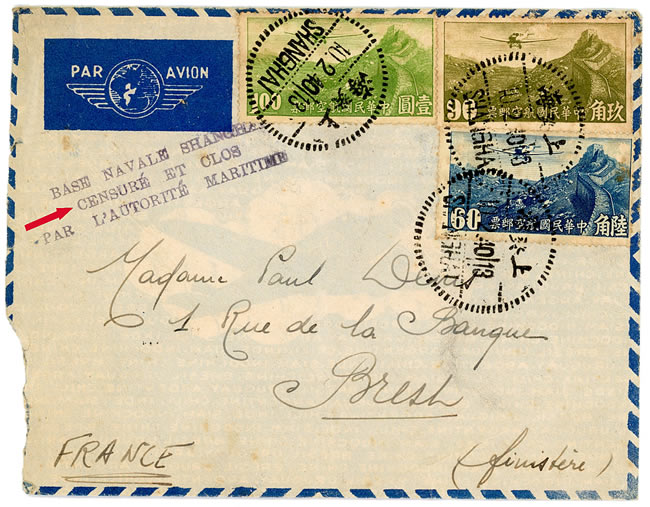 PAR AVION
100 中華民國航空郵票 壹圓
90 中華民國航空郵票 玖角
SHANGHAI 10.2.40 13 上海
60 中華民國航空郵票 陸角
SHANGHAI 上海
BASE NAVALE SHANGHAI
CENSURÉ ET CLOS
PAR L'AUTORITÉ MARITIME
Madame Paul
1 Rue de la Banque
Brest
FRANCE
(finistère)